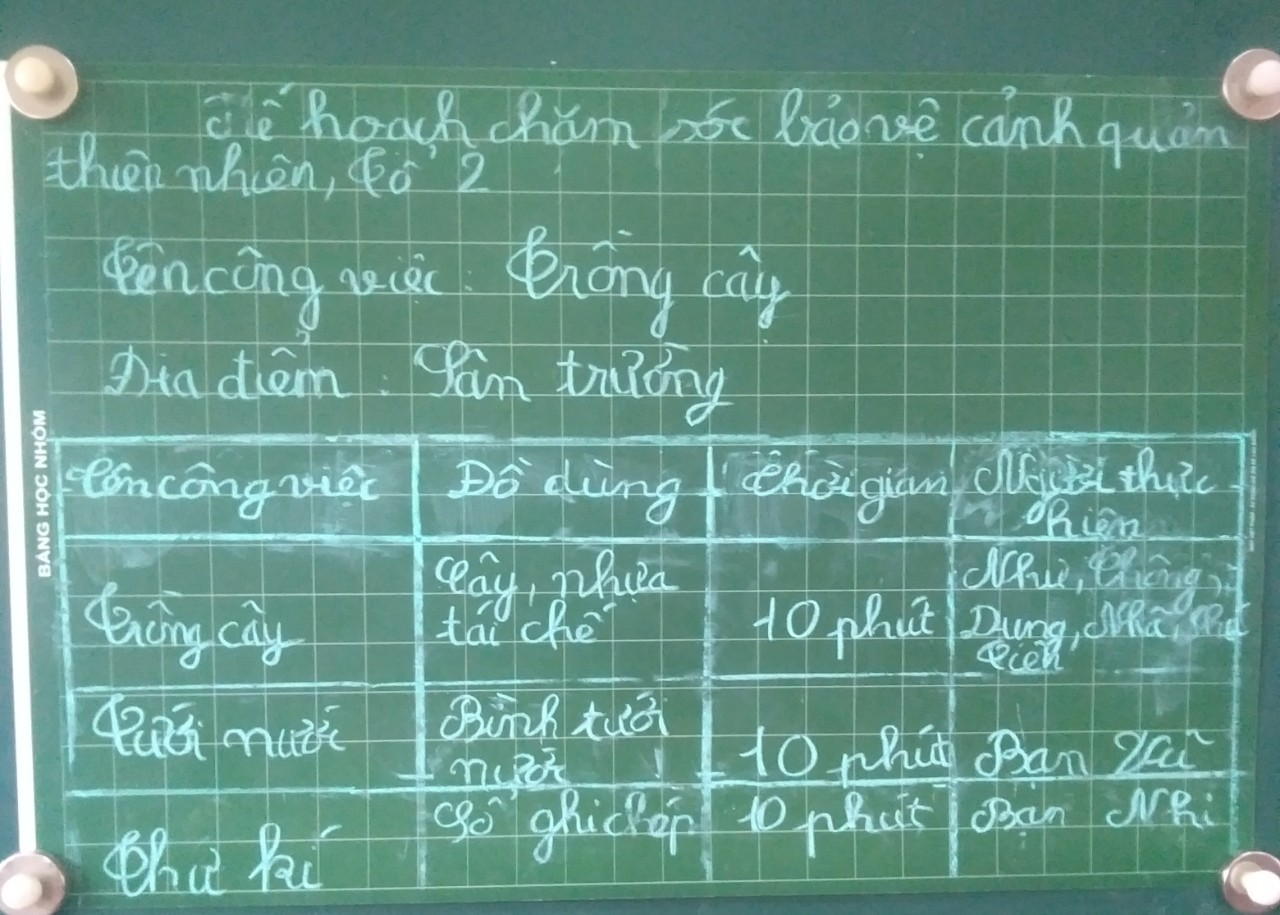 Kế hoạch chăm sóc bảo vệ cảnh quản
thiên nhiên, Tổ 2
Tên công việc: Trồng cây
Địa điểm: Sân trường
Tên công việc Đồ dùng Thời gian Người thực
hiện
Trồng cây
Cây, nhựa
tái chế
10 phút
Như, Thông,
Dung, Nhã,
Tiến
Tưới nước
Bình tưới
nước
10 phút
Bạn Vũ
Thư kí
Sổ ghi chép
10 phút
Bạn Nhi
BẢNG HỌC NHÓM